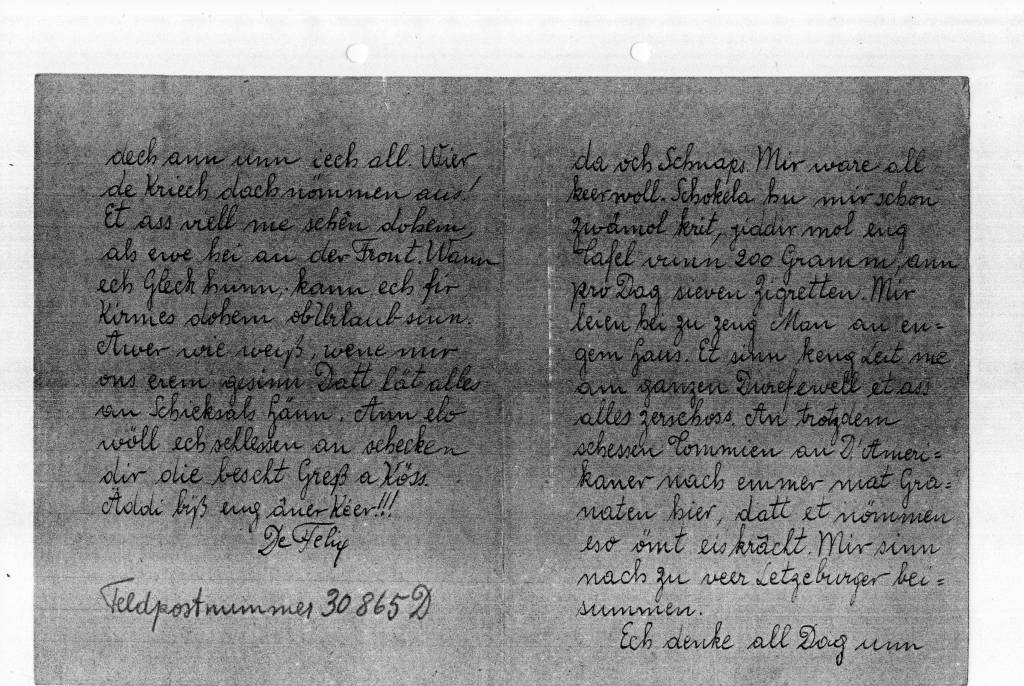 dech ann unn iech all. Wier
de Kriech dach nömmen aus!
Et ass viell me schên dohem,
als ewe hei an der Front. Wann
ech Gleck hunn, kann ech fir
Kirmes dohem ob Urlaub sinn.
Awer wie weiß, wene mir
ons erem gesinn. Datt lät alles
an Schicksals Hänn. Ann elo
wöll ech schlessen an schecken
dir die bescht Greß a Köss.
Äddi biß eng äner Keer!!!
De Felix
Feldpostnummer 30865 D
da och Schnaps. Mir ware all
keer woll. Schokela hu mir schon
zwämol krit, jiddir mol eng
Tafel vunn 200 Gramm, ann
pro Dag sieven Zigretten. Mir
leien hei zu zeng Man an en=
gem Haus. Et sinn keng Leit me
am ganzen Duref, ewell et ass
alles zerschoss. An trotzdem
schessen Tommien an D'Ameri=
kaner nach emmer mat Gra=
naten hier, datt et nömmen
eso ömt eis krächt. Mir sinn
nach zu veer Letzeburger bei=
summen.
Ech denke all Dag unn